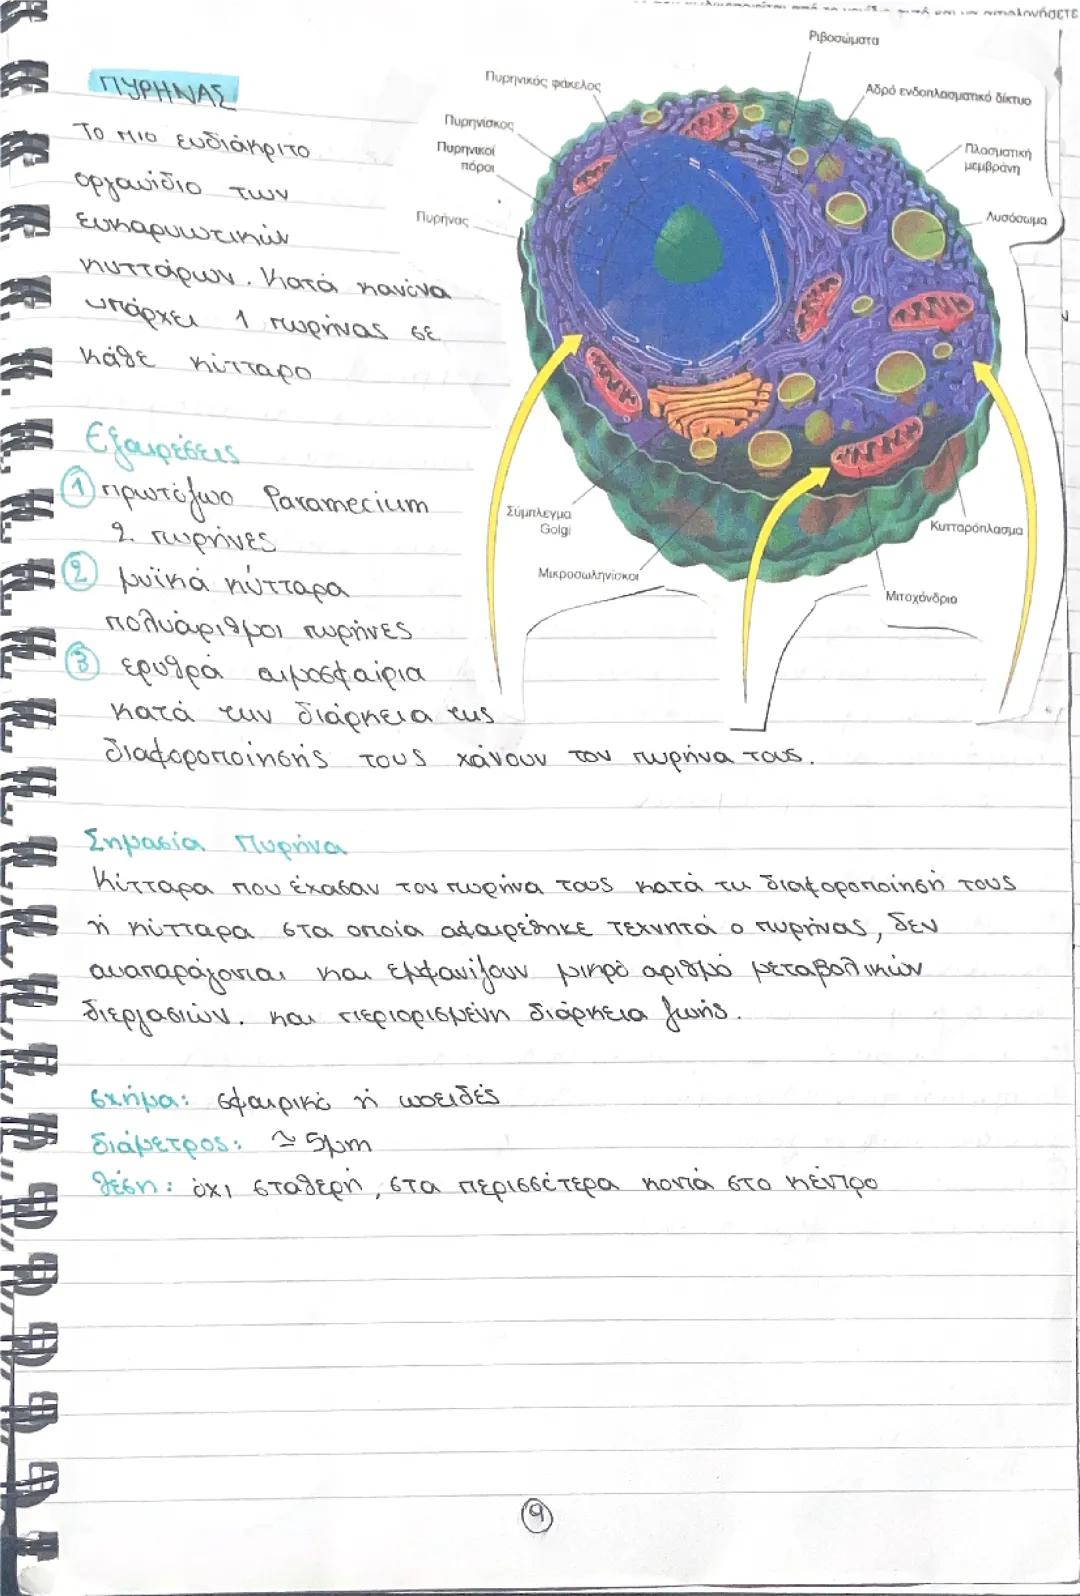 Ριβοσώματα
Πυρηνικός φάκελος
Αδρό ενδοπλασματικό δίκτυο
Πυρηνίσκος
Πυρηνικοί
πόροι
Πλασματική
μεμβράνη
Πυρήνας
Λυσόσωμα
Σύμπλεγμα
Golgi
Κυτταρόπλασμα
Μικροσωληνίσκοι
Μιτοχόνδριο
ΠΥΡΗΝΑΣ
Το πιο ευδιάκριτο
οργανίδιο των
ευκαρυωτικών
κυττάρων. Κατά κανόνα
υπάρχει 1 πυρήνας σε
κάθε κύτταρο
Εξαιρέσεις
1 πρωτόζωο Paramecium
2 πυρήνες
2 μυϊκά κύτταρα
πολυάριθμοι πυρήνες
3 ερυθρά αιμοσφαίρια
κατά την διάρκεια της
διαφοροποίησής τους χάνουν τον πυρήνα τους.
Σημασία Πυρήνα
Κύτταρα που έχασαν τον πυρήνα τους κατά τη διαφοροποίησή τους
ή κύτταρα στα οποία αφαιρέθηκε τεχνητά ο πυρήνας, δεν
αναπαράγονται και εμφανίζουν μικρό αριθμό μεταβολικών
διεργασιών. και περιορισμένη διάρκεια ζωής.
σχήμα: σφαιρικό ή ωοειδές
διάμετρος: ≃ 5μm
θέση: όχι σταθερή, στα περισσότερα κοντά στο κέντρο
9